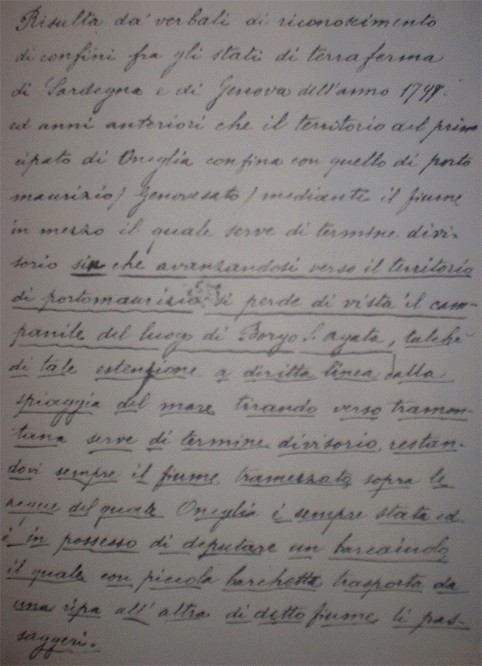 Risulta da' verbali di riconoscimento
di confini fra gli stati di terraferma
di Sardegna e di Genova dell'anno
ed anni anteriori che il territorio del prin
cipato di Oneglia confina con quello di porto
maurizio / Genovesato / mediante il fiume
in mezzo il quale serve di termine divi-
sorio sin che avanzandosi verso il territorio
di portomaurizio si perde di vista il cam-
panile del luogo di Borgo S. Agata, talchè
di tale estensione a diritta linea dalla
spiaggia del mare tirando verso tramon-
tana serve di termine divisorio, restan-
dovi sempre il fiume tramezzato sopra le
acque del quale Oneglia è sempre stata ed
è in possesso di deputare un barcaiuolo
il quale con piccola barchetta trasporta da
una ripa all'altra di detto fiume li pas-
saggeri.